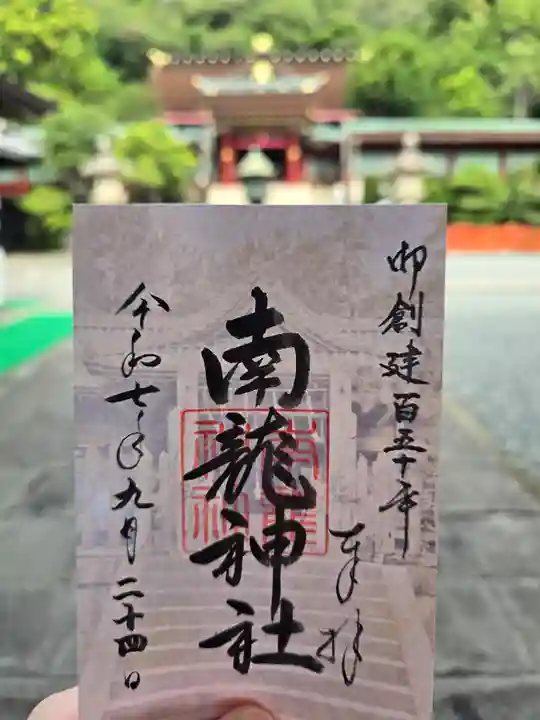 御創建百五十年
奉拝
南龍神社
南龍神社
令和七年九月二十四日